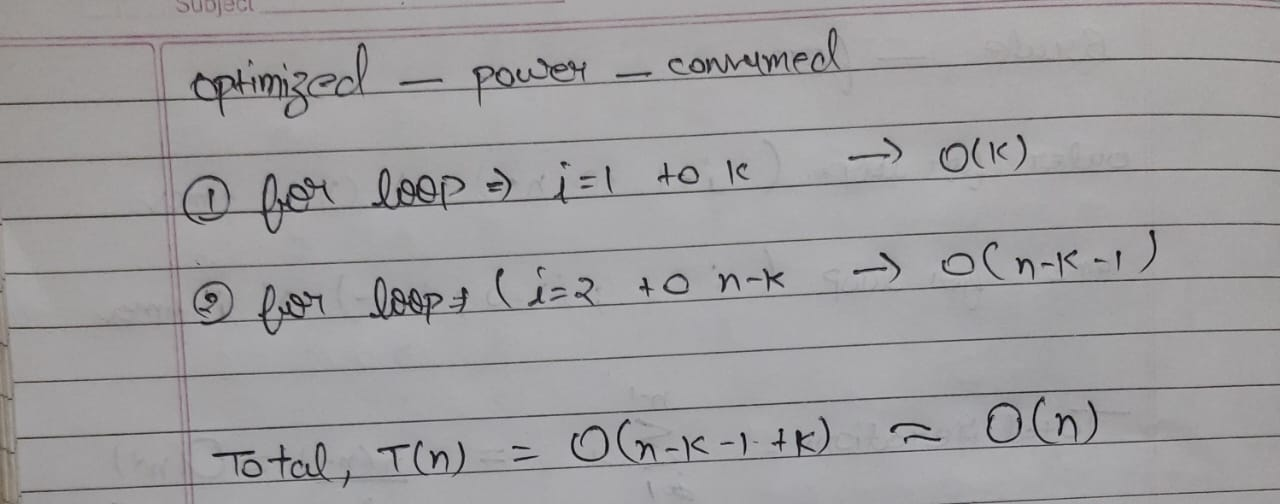 Subject
optimized - power - consumed
① for loop ⇒ i=1 to k → O(k)
② for loop ⇒ (i=2 to n-k → O(n-k-1)
Total, T(n) = O(n-k-1+k) ≈ O(n)